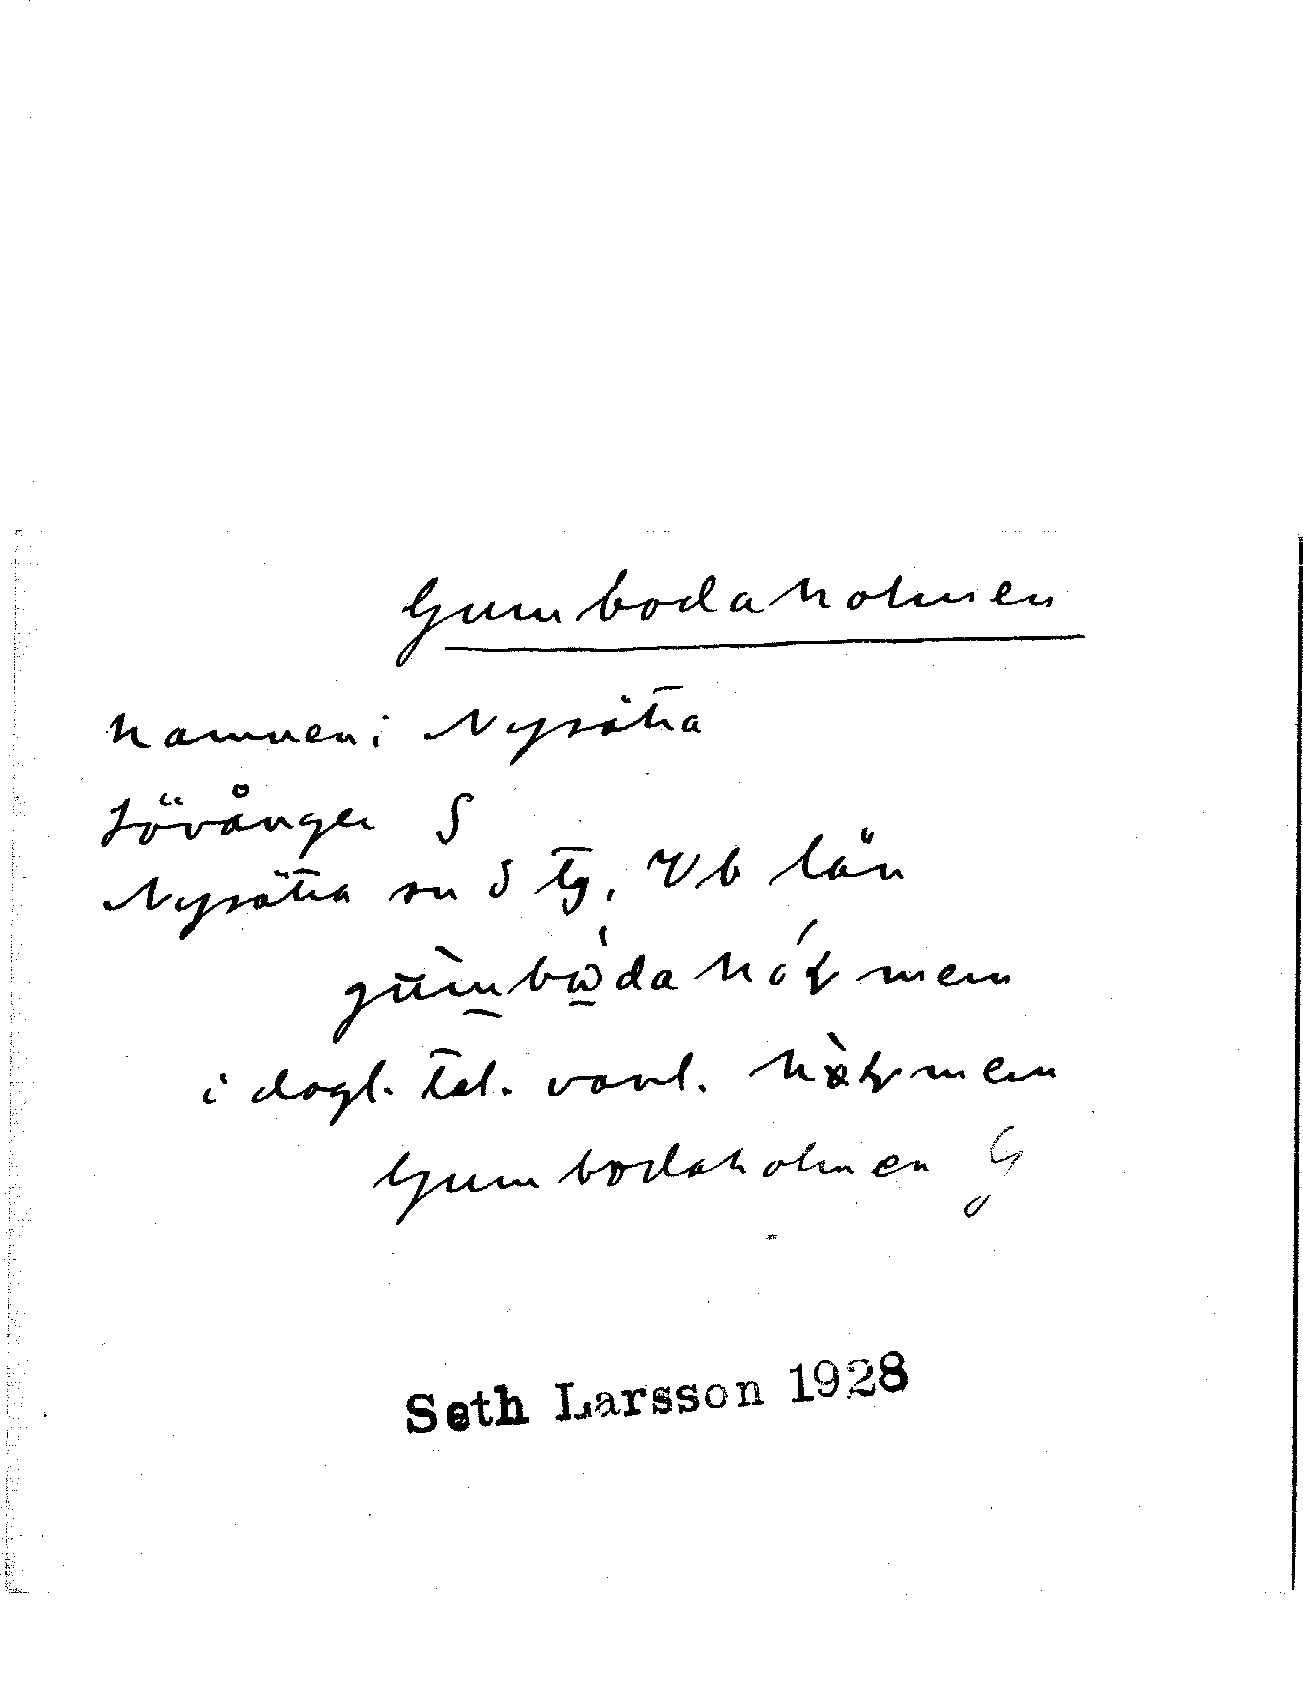 Gumbodaholmen
Hamnen i Nysätra
Lövånger S
Nysätra sn S tg. Vb län
i dagl. tal. vanl.
Gumbodaholmen G
Seth Larsson 1928